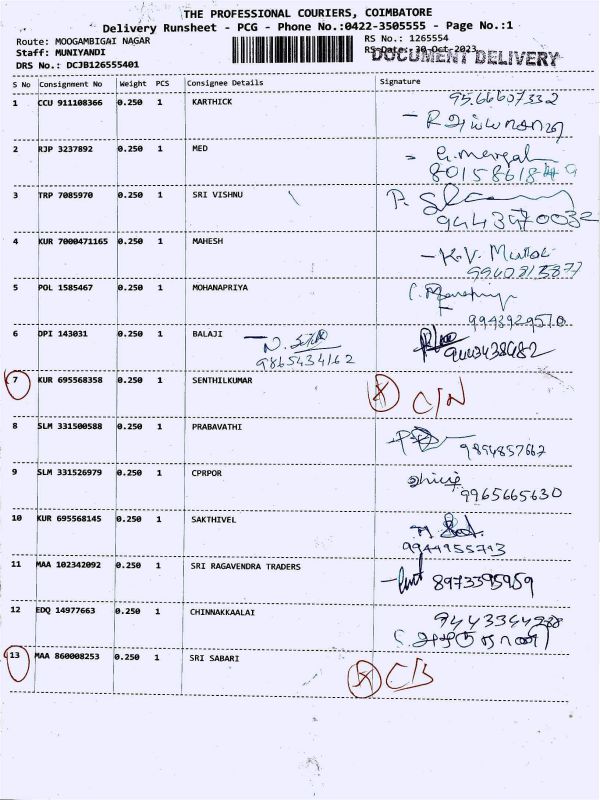 THE PROFESSIONAL COURIERS, COIMBATORE
Delivery Runsheet - PCG - Phone No.:0422-3505555 - Page No.:1
Route: MOOGAMBIGAI NAGAR RS No.: 1265554
Staff: MUNIYANDI RS Date: 30-Oct-2023
DOCUMENT DELIVERY
DRS No.: DCJB126555401
S No Consignment No Weight PCS Consignee Details Signature
1 CCU 911108366 0.250 1 KARTHICK 9566607332
2 RJP 3237892 0.250 1 MED
3 TRP 7085970 0.250 1 SRI VISHNU
4 KUR 7000471165 0.250 1 MAHESH K.V.
5 POL 1585467 0.250 1 MOHANAPRIYA
9943929570
6 DPI 143031 0.250 1 BALAJI N.
9865434162 9443438482
7 KUR 695568358 0.250 1 SENTHILKUMAR X C/N
8 SLM 331500588 0.250 1 PRABAVATHI
9894857667
9 SLM 331526979 0.250 1 CPRPOR
9965665630
10 KUR 695568145 0.250 1 SAKTHIVEL
11 MAA 102342092 0.250 1 SRI RAGAVENDRA TRADERS
8973395959
12 EDQ 14977663 0.250 1 CHINNAKKAALAI
13 MAA 860008253 0.250 1 SRI SABARI X C/B